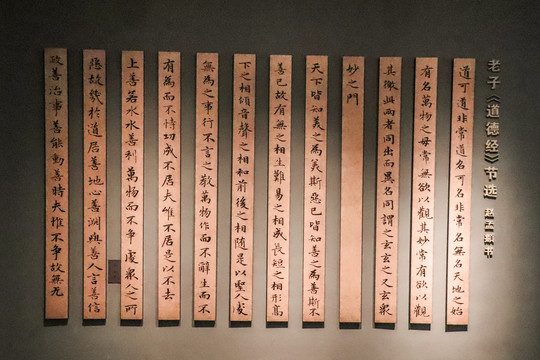 老子《道德经》节选 赵孟頫书
道可道非常道名可名非常名無名天地之始
有名萬物之母常無欲以觀其妙常有欲以觀
其徼此兩者同出而異名同謂之玄玄之又玄衆
妙之門
天下皆知美之為美斯惡已皆知善之為善斯不
善已故有無之相生難易之相成長短之相形高
下之相傾音聲之相和前後之相随是以聖人處
無為之事行不言之教萬物作而不辭生而不
有為而不恃功成不居夫惟不居是以不去
上善若水水善利萬物而不爭處衆人之所
惡故幾於道居善地心善淵與善人言善信
政善治事善能動善時夫惟不爭故無尤